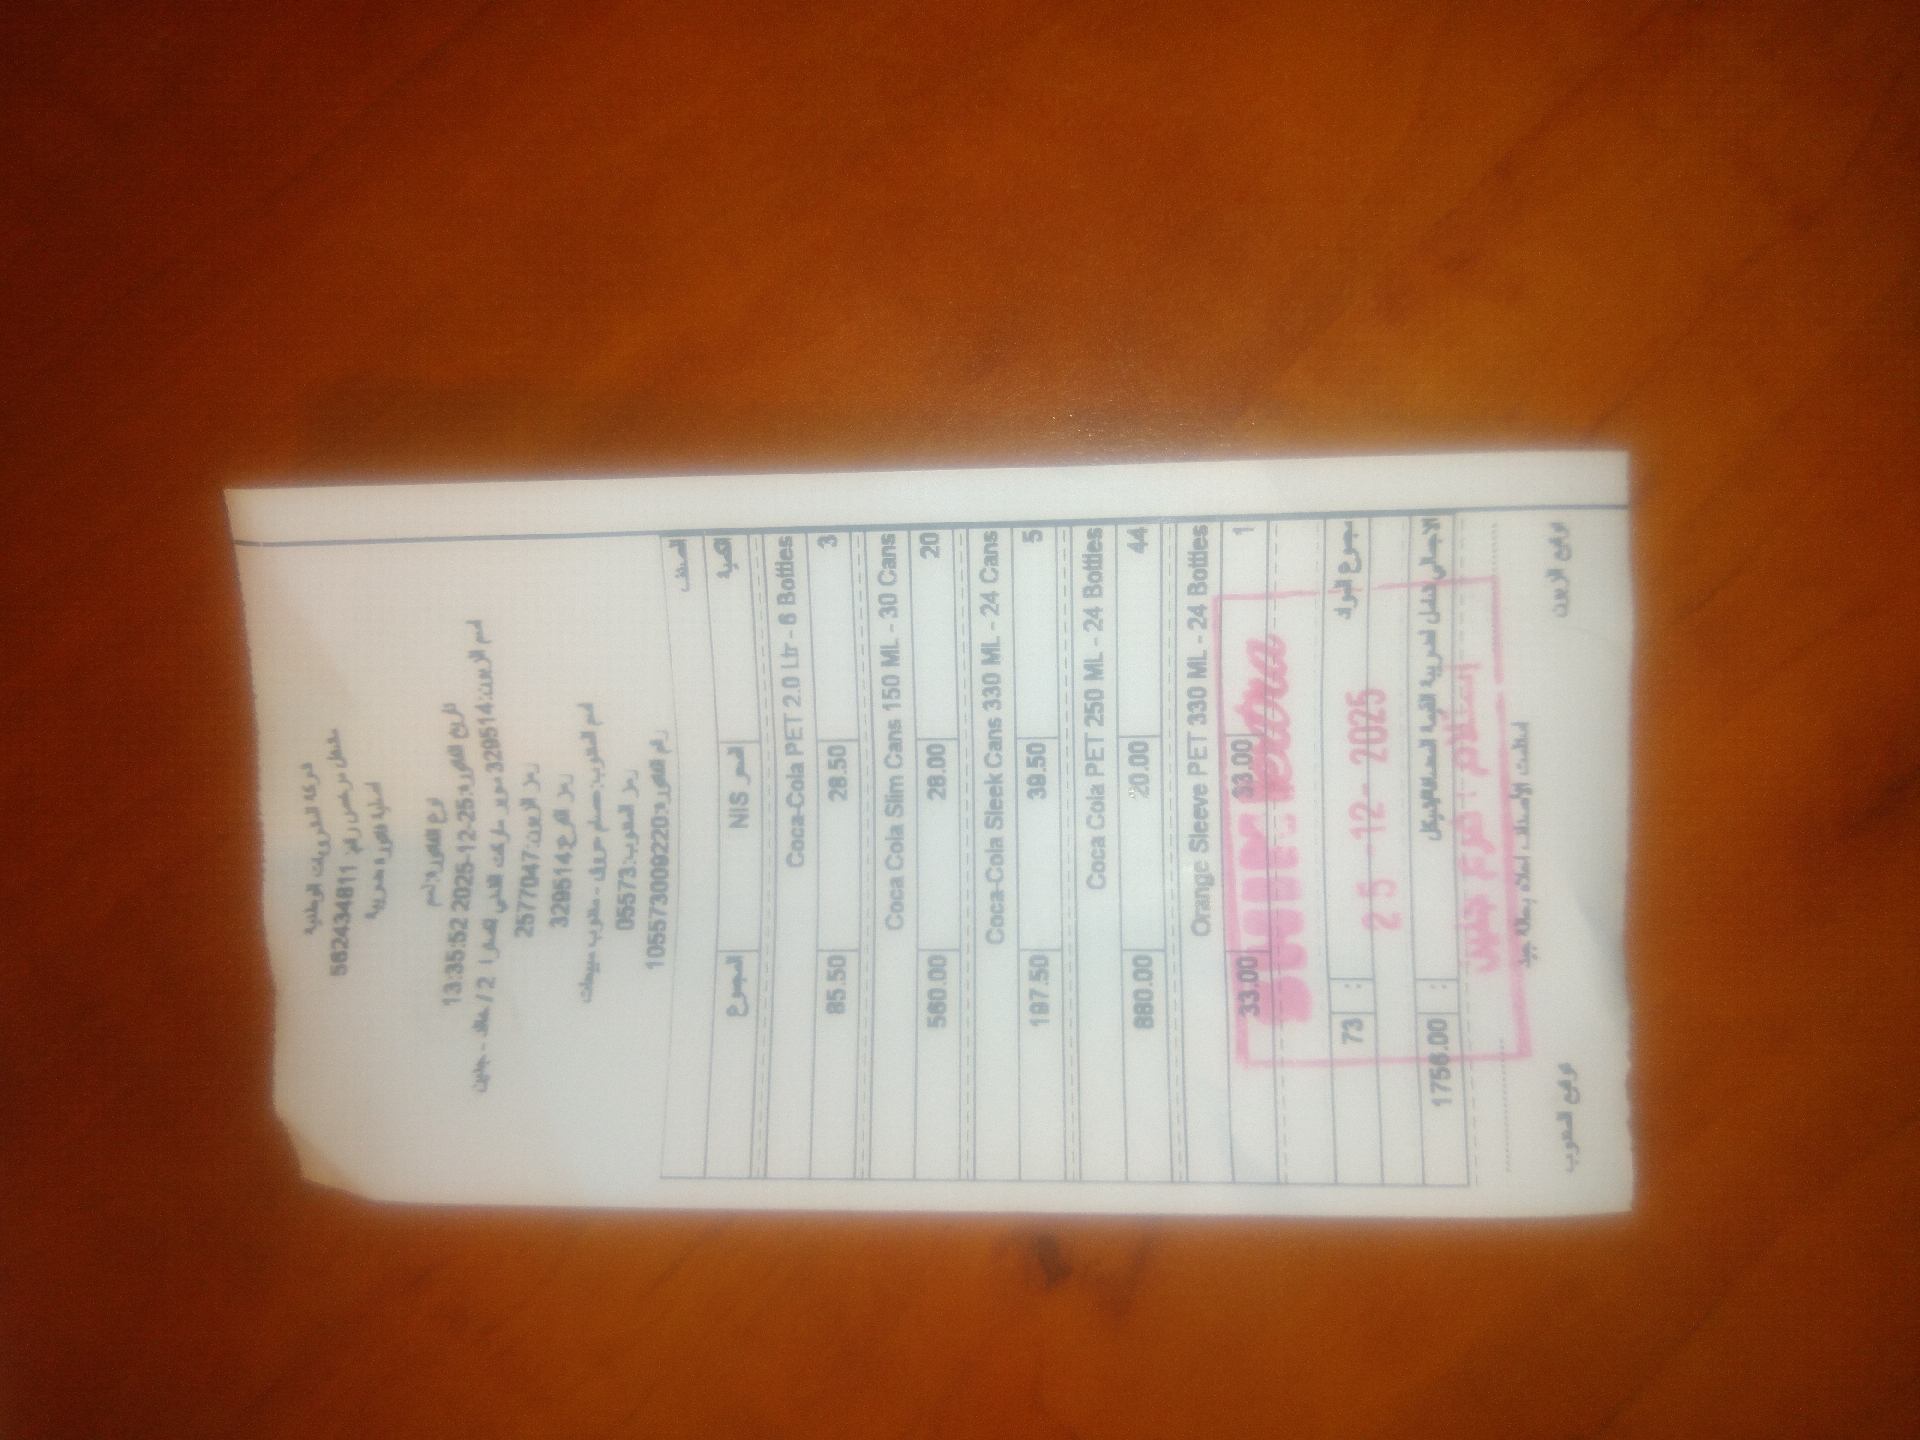 شركة المشروبات الوطنية
مشتغل مرخص رقم: 562434811
اصلية فاتورة ضريبية
نوع الفاتورة:
تاريخ الفاتورة:25-12-2025 13:35:52
اسم الزبون:329514 سوبر ماركت
رمز الزبون:2577047
رمز الفرع:329514
اسم المندوب: - مندوب مبيعات
رمز المندوب:05573
رقم الفاتورة:105573009220
الصنف
الكمية السعر NIS المجموع
Coca-Cola PET 2.0 Ltr - 6 Bottles
3 28.50 85.50
Coca Cola Slim Cans 150 ML - 30 Cans
20 28.00 560.00
Coca-Cola Sleek Cans 330 ML - 24 Cans
5 39.50 197.50
Coca Cola PET 250 ML - 24 Bottles
44 20.00 880.00
Orange Sleeve PET 330 ML - 24 Bottles
1 33.00 33.00
مجموع المواد : 73
25 -12- 2025
الاجمالي شامل لضريبة القيمة المضافة : 1756.00
استلام / فرع جنين
استلمت الأصناف اعلاه بحالة جيدة
توقيع الزبون توقيع المندوب